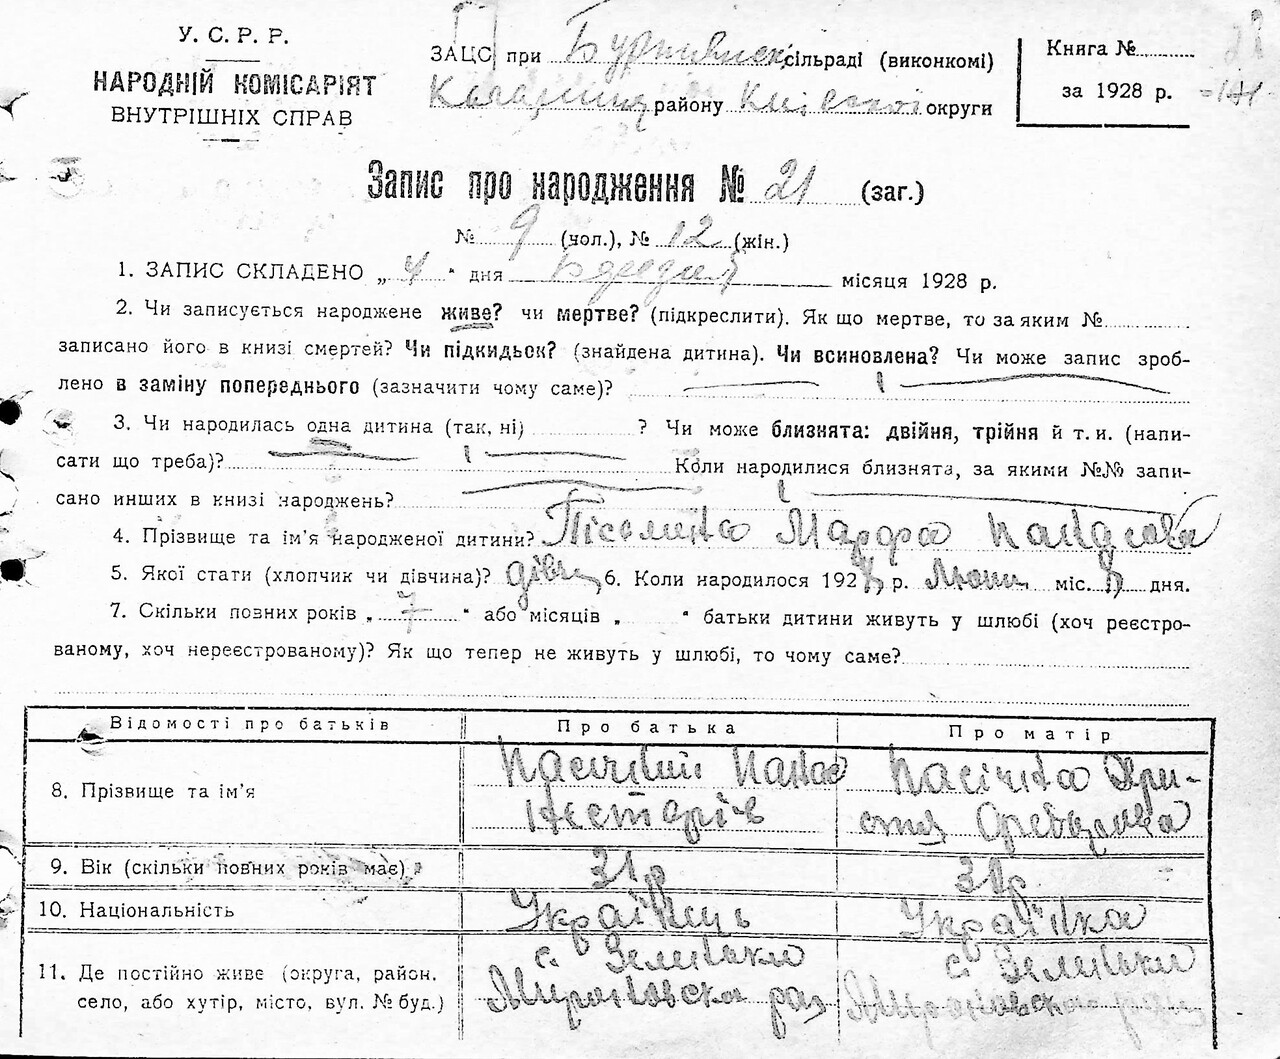 У. С. Р. Р.
НАРОДНІЙ КОМІСАРІЯТ
ВНУТРІШНІХ СПРАВ
ЗАЦС при сільраді (виконкомі)
району Київської округи
Книга №
за 1928 р.
Запис про народження № 21 (заг.)
№ 9 (чол.), № 12 (жін.)
1. ЗАПИС СКЛАДЕНО „ 4 “ дня місяця 1928 р.
2. Чи записується народжене живе? чи мертве? (підкреслити). Як що мертве, то за яким №
записано його в книзі смертей? Чи підкидьок? (знайдена дитина). Чи всиновлена? Чи може запис зроб-
лено в заміну попереднього (зазначити чому саме)?
3. Чи народилась одна дитина (так, ні) ? Чи може близнята: двійня, трійня й т. и. (напи-
сати що треба)? Коли народилися близнята, за якими №№ запи-
сано инших в книзі народжень?
4. Прізвище та ім'я народженої дитини? Марфа
5. Якої стати (хлопчик чи дівчина)? дівч 6. Коли народилося 1928 р. міс. дня.
7. Скільки повних років „ 7 “ або місяців „ “ батьки дитини живуть у шлюбі (хоч реєстро-
ваному, хоч нереєстрованому)? Як що тепер не живуть у шлюбі, то чому саме?
Відомості про батьків Про батька Про матір
8. Прізвище та ім'я Пасічний Панас Пасічна Хри-
Несторів стя
9. Вік (скільки повних років має) 31р
10. Національність Українець Українка
11. Де постійно живе (округа, район, с. Зеленьки с. Зеленьки
село, або хутір, місто, вул. № буд.) Мироновска рай Мироновска рай